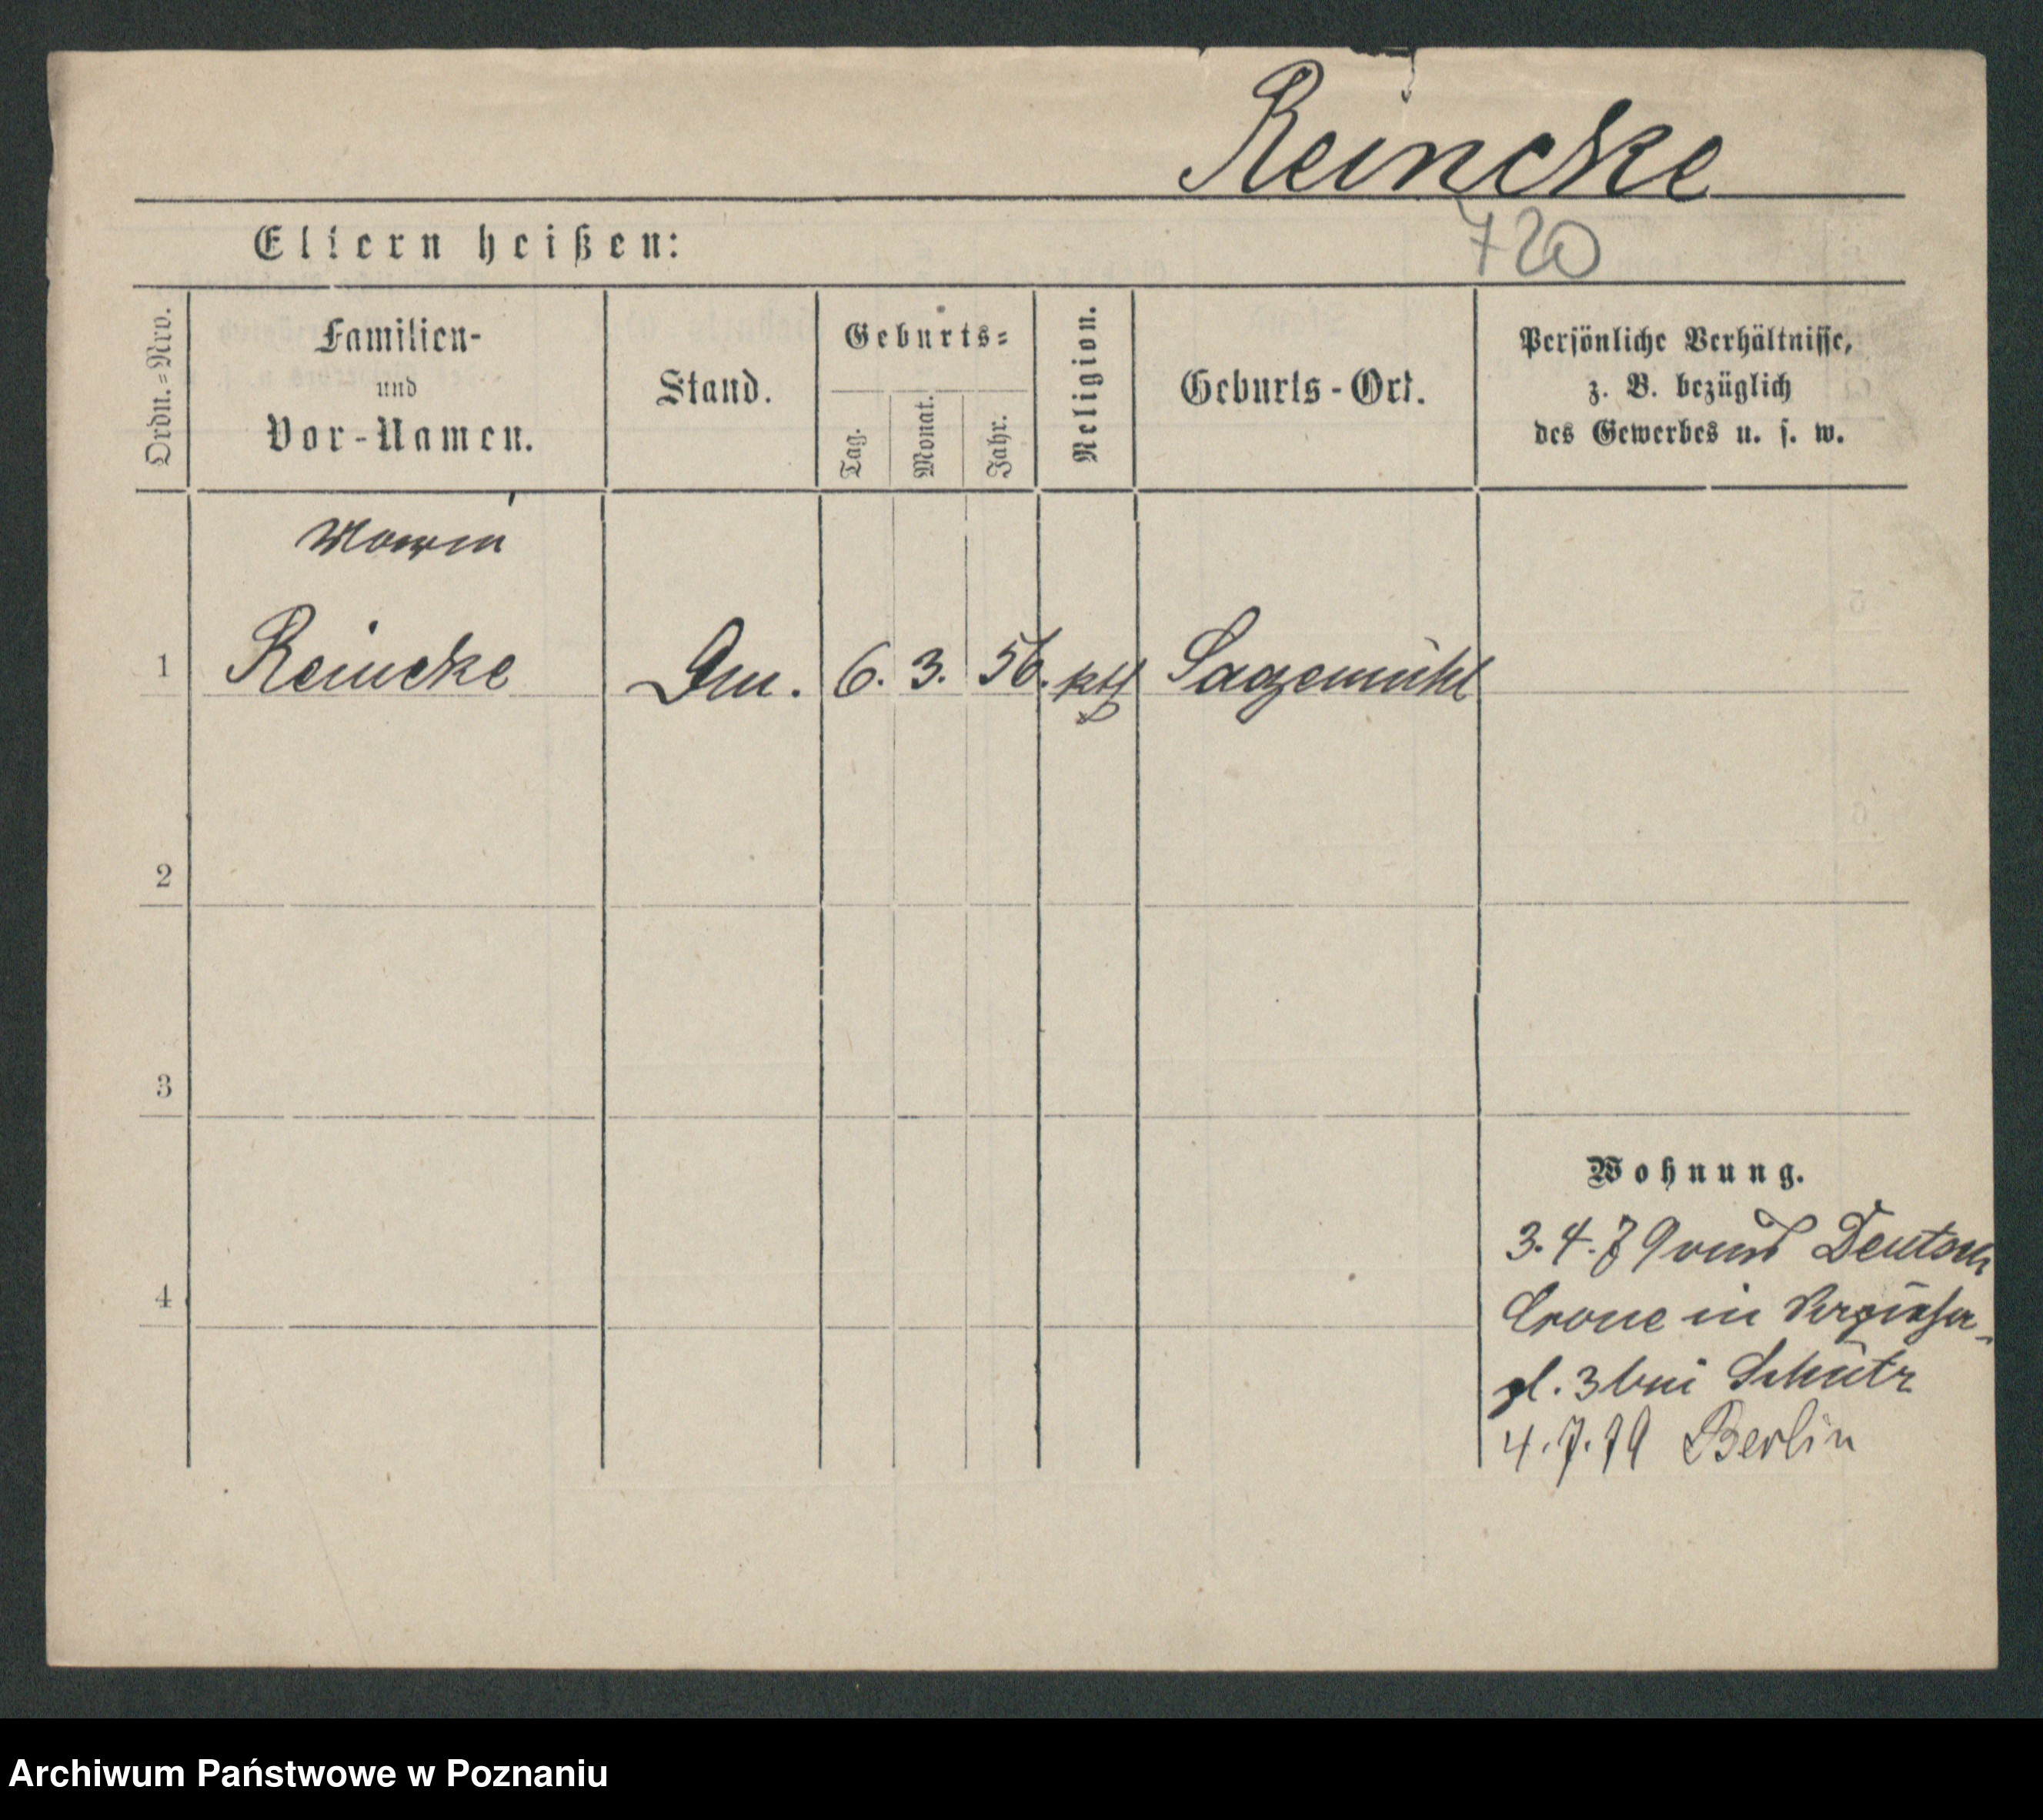 Reincke
Eltern heißen:
720
Ordn.=Nro.
Familien-
und
Vor-Namen.
Stand.
Geburts=
Tag.
Monat.
Jahr.
Religion.
Geburts-Ort.
Persönliche Verhältnisse,
z. B. bezüglich
des Gewerbes u. s. w.
1
Reincke
6.
3.
56.
kth
Sagemühl
2
3
4
Wohnung.
3.4.79 Deutsch
Crone in
pl. 3 bei Schütz
4.7.79 Berlin
Archiwum Państwowe w Poznaniu